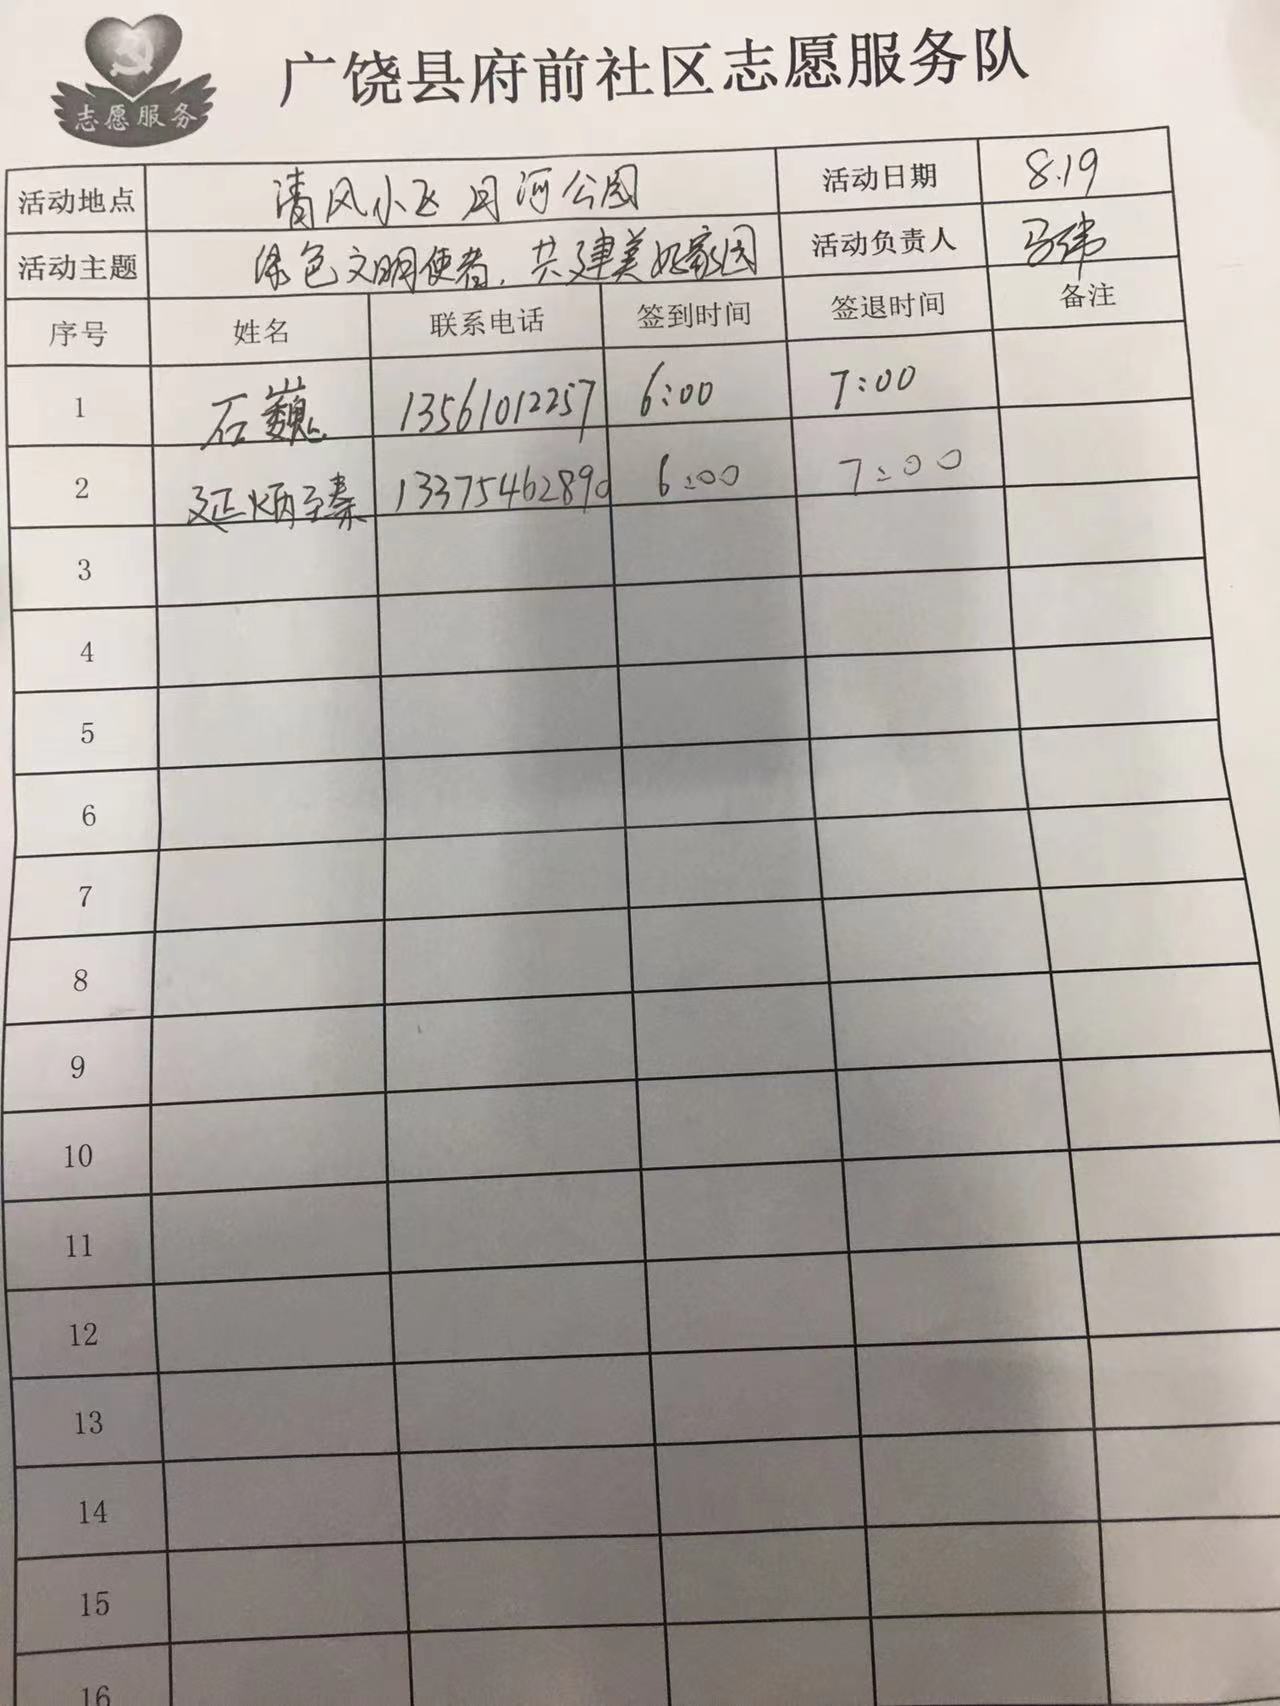 志愿服务
广饶县府前社区志愿服务队
活动地点 清风小区 月河公园 活动日期 8.19
活动主题 绿色文明使者，共建美好家园 活动负责人 马伟
序号 姓名 联系电话 签到时间 签退时间 备注
1 石巍 13561012257 6:00 7:00
2 延炳臻 13375462890 6:00 7:00
3
4
5
6
7
8
9
10
11
12
13
14
15
16